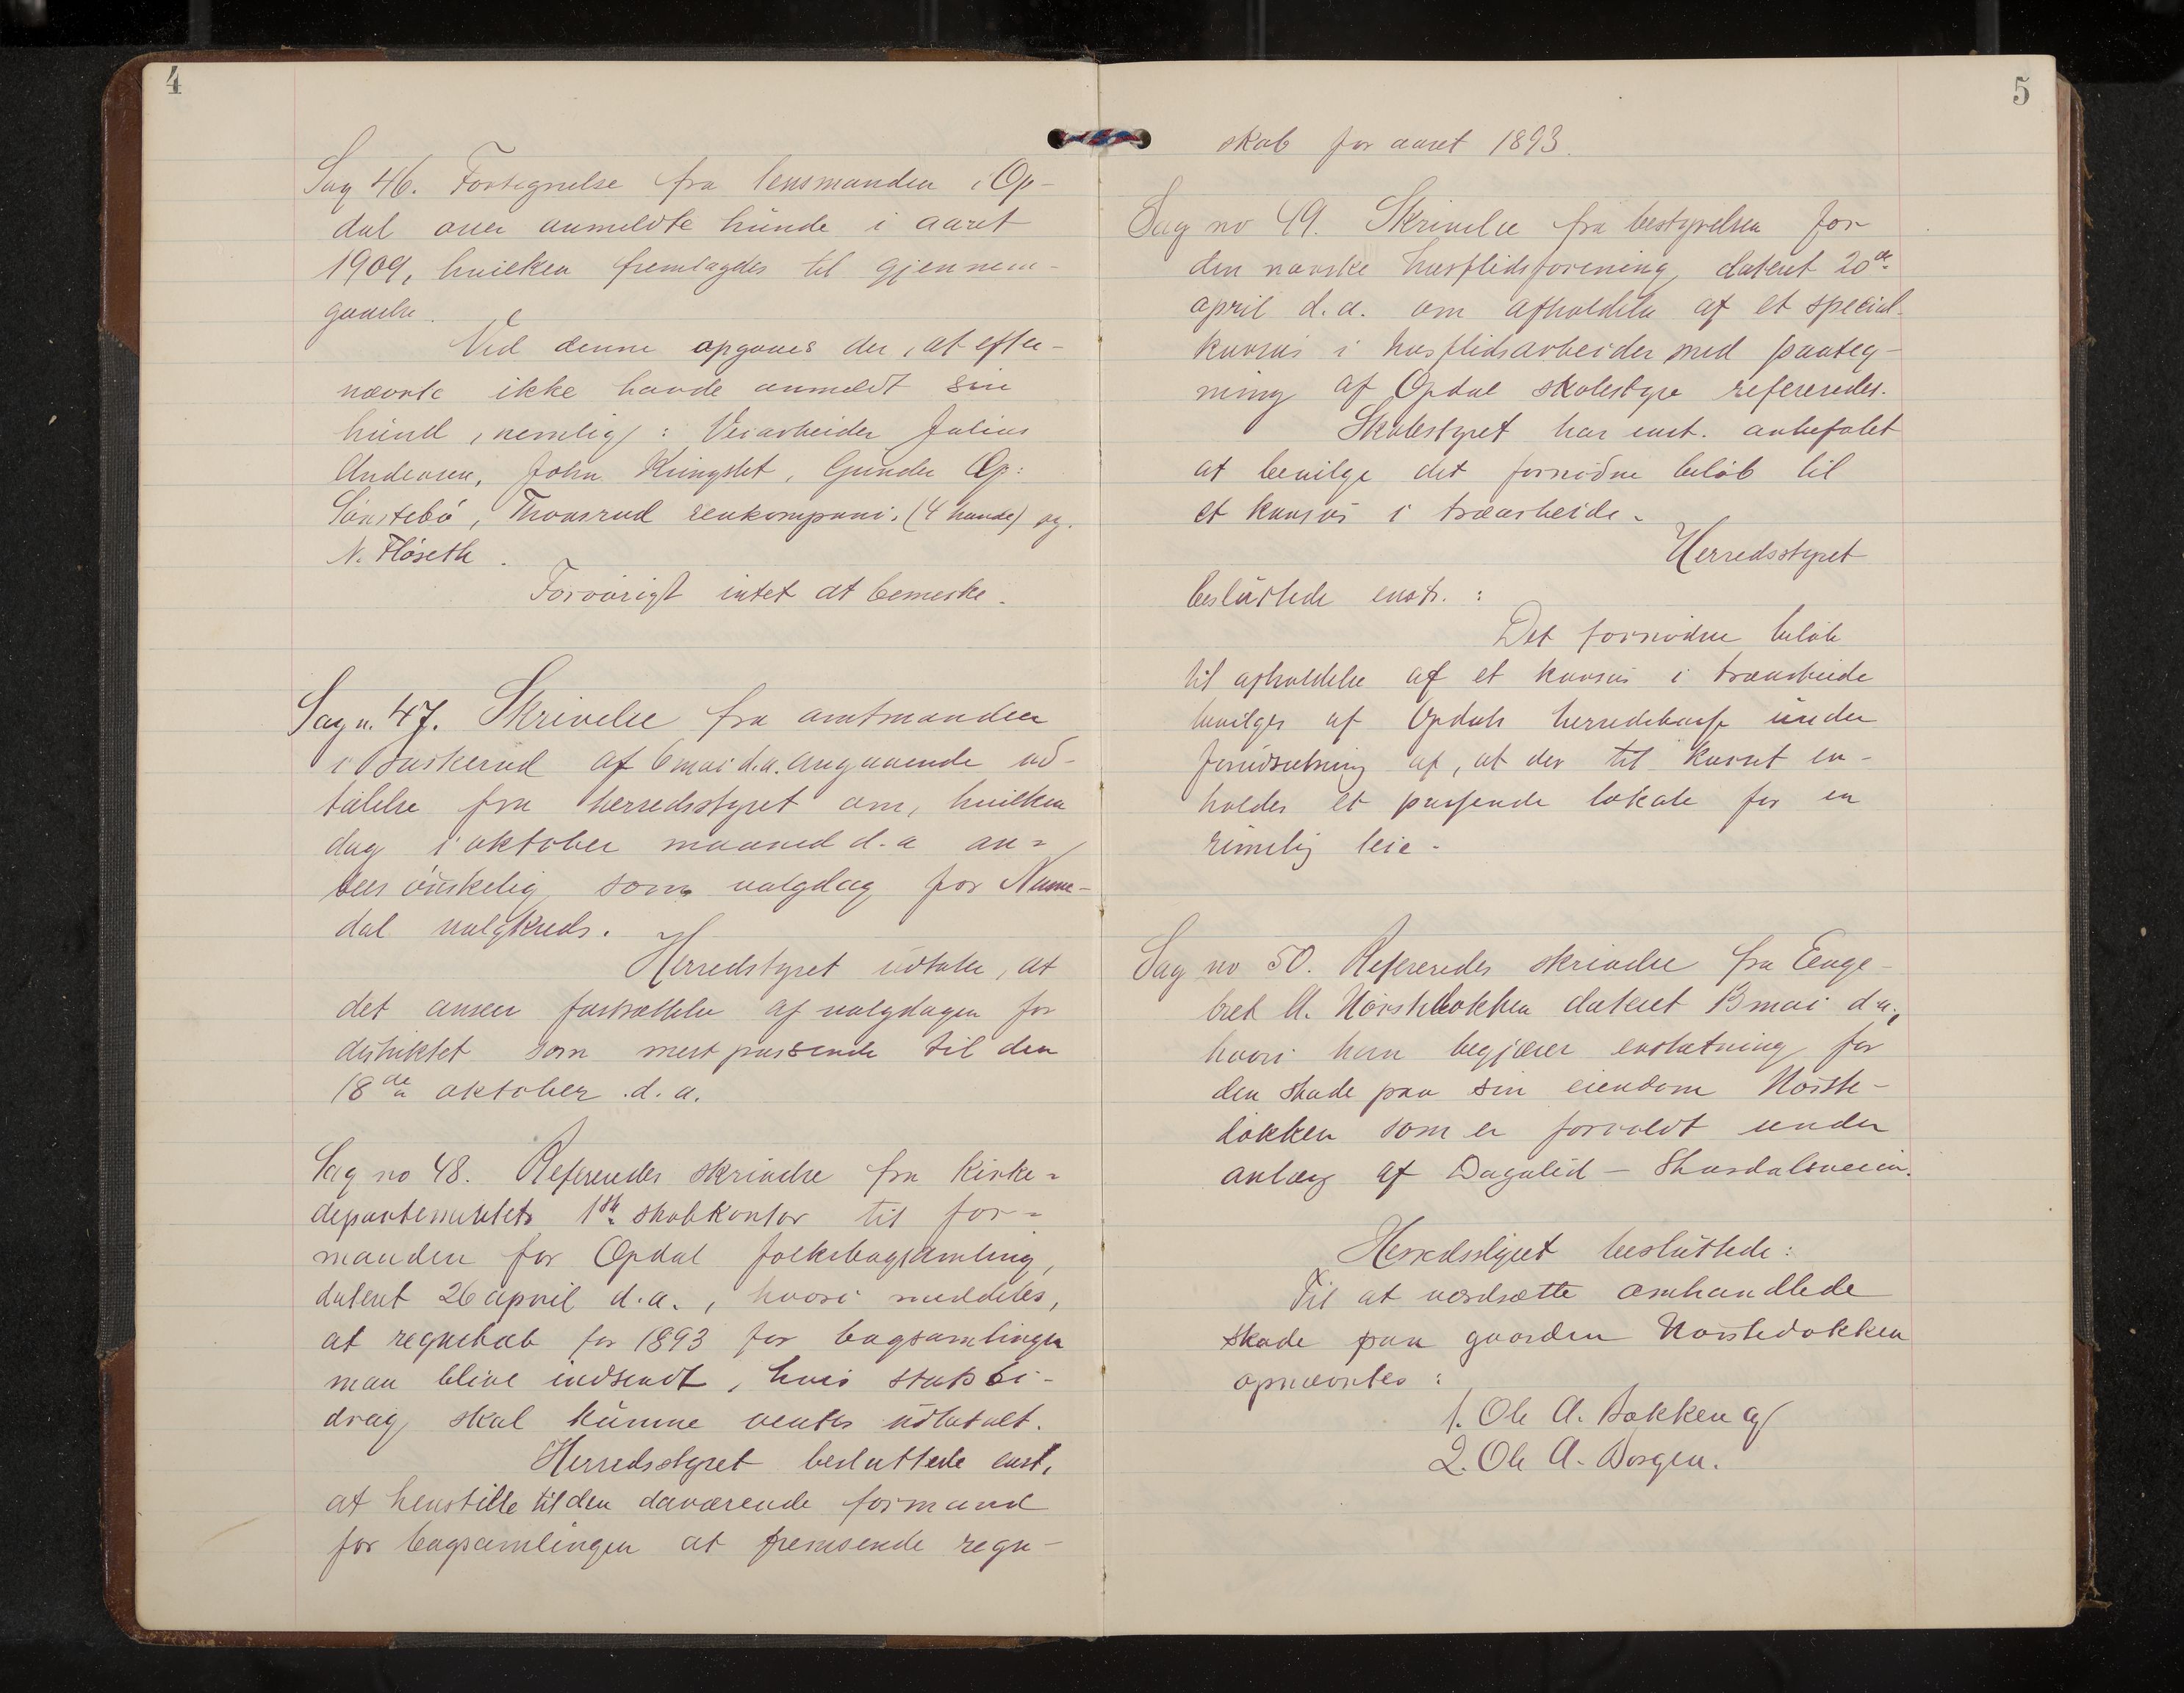 4
Sag 46. Fortegnelse fra lensmanden i Op-
dal over anmeldte hunde i aaret
1909, hvilken fremlagdes til gjennem-
gaaelse.
Ved denne opgaves der, at efter-
nævnte ikke havde anmeldt sin
hund, nemlig: Veiarbeider Julius
Andersen, John Kringstet, Gunder Op:
Sønstebø, Thonsrud renkompani. (4 hunde) og
N. Fløseth.
Forøvrigt intet at bemerke.
Sag n. 47. Skrivelse fra amtmanden
i Buskerud af 6 mai d.a. angaaende ud-
talelse fra herredsstyret om, hvilken
dag i oktober maaned d.a an=
sees ønskelig som valgdag for Nume-
dal valgkreds.
Herredstyret udtaler, at
det anseer fastsættelse af valgdagen for
distriktet som mest passende til den
18de oktober d.a.
Sag no 48. Refereredes skrivelse fra kirke=
departementets 1ste skolekontor til for=
manden for Opdal folkebogsamling,
dateret 26 april d.a., hvori meddeles,
at regnskab for 1893 for bogsamlingen
maa blive indsendt, hvis statsbi-
drag skal kunne ventes udbetalt.
Herredsstyret besluttede enst.
at henstille til den daværende formand
for bogsamlingen at fremsende regn-
5
skab for aaret 1893.
Sag no 49. Skrivelse fra bestyrelsen for
den norske husflidsforening, dateret 20de
april d.a. om afholdelse af et special-
kursus i husflidsarbeider med paateg-
ning af Opdal skolestyre refereredes.
Skolestyret har enst. anbefalet
at bevilge det fornødne beløb til
et kursus i træarbeide.
Herredsstyret
besluttede enst. :
Det fornødne beløb
til afholdelse af et kursus i træarbeide
bevilges af Opdals herredskasse under
forudsætning af, at der til kurset er-
holdes et passende lokale for en
rimelig leie.
Sag no 50. Refereredes skrivelse fra Enge-
bret A. Nørstedokken dateret 13 mai d.a.,
hvori han begjærer erstatning for
den skade paa sin eiendom Nørste-
dokken som er forvoldt under
anlæg af Dagalid - Skurdalsveien.
Herredsstyret besluttede:
Til at værdsætte omhandlede
skade paa gaarden Nørstedokken
opnævntes:
1. Ole A. Bakken og
2. Ole A. Borgen.